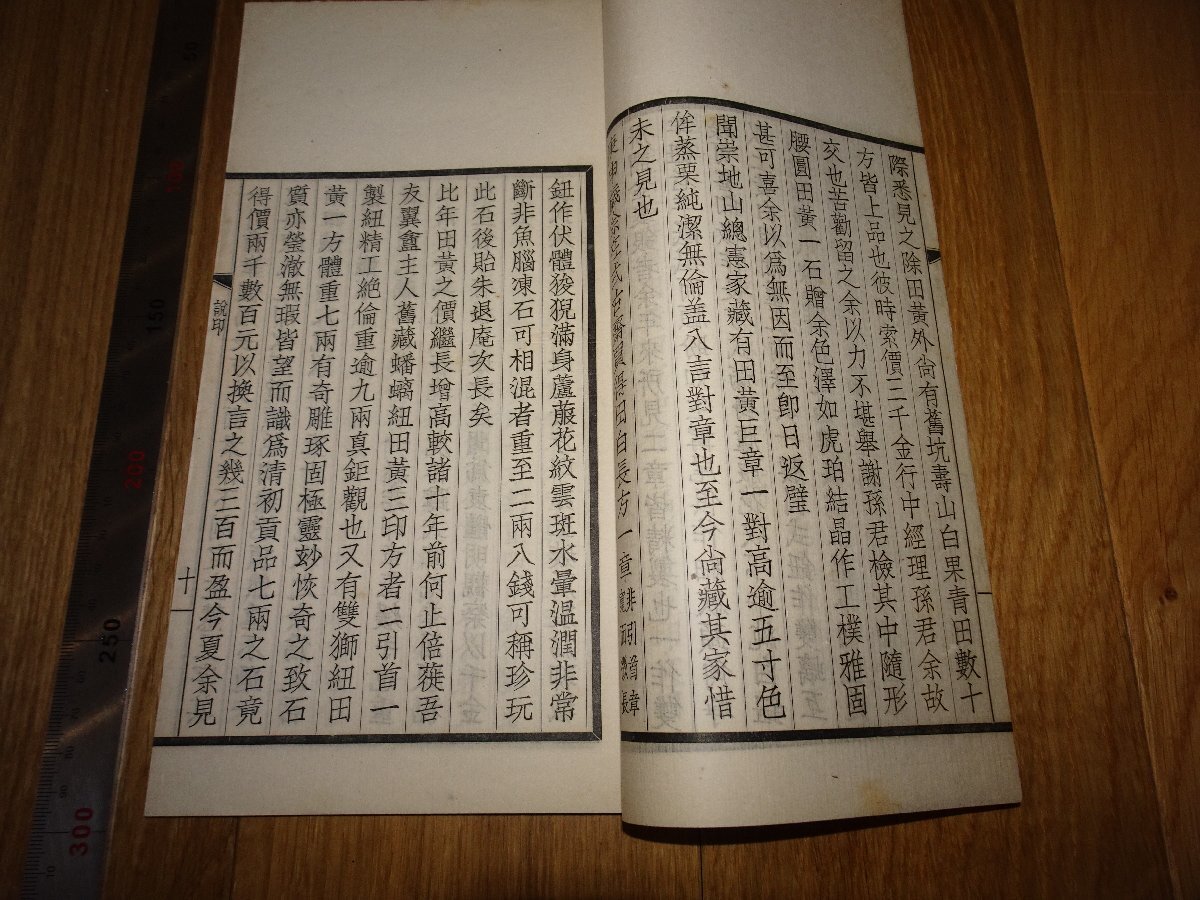 際悉見之除田黃外尚有舊坑壽山白果青田數十
方皆上品也彼時索價二千金行中經理孫君余故
交也苦勸留之余以力不堪舉謝孫君檢其中隨形
腰圓田黃一石贈余色澤如虎珀結晶作工樸雅固
甚可喜余以爲無因而至卽日返璧
聞崇地山總憲家藏有田黃巨章一對高逾五寸色
侔蒸栗純潔無倫盖入言對章也至今尙藏其家惜
未之見也
白長方一章非引首章
鈕作伏體狻猊滿身蘆菔花紋雲斑水暈温潤非常
斷非魚腦凍石可相混者重至二兩入錢可稱珍玩
此石後貽朱退庵次長矣
比年田黃之價繼長增高較諸十年前何止倍蓰吾
友翼盦主人舊藏蟠螭紐田黃三印方者二引首一
製紐精工絕倫重逾九兩真鉅觀也又有雙獅紐田
黃一方體重七兩有奇雕琢固極靈玅恢奇之致石
質亦瑩澈無瑕皆望而識爲清初貢品七兩之石竟
得價兩千數百元以換言之幾三百而盈今夏余見
說印
十
50
100
150
200
250
300